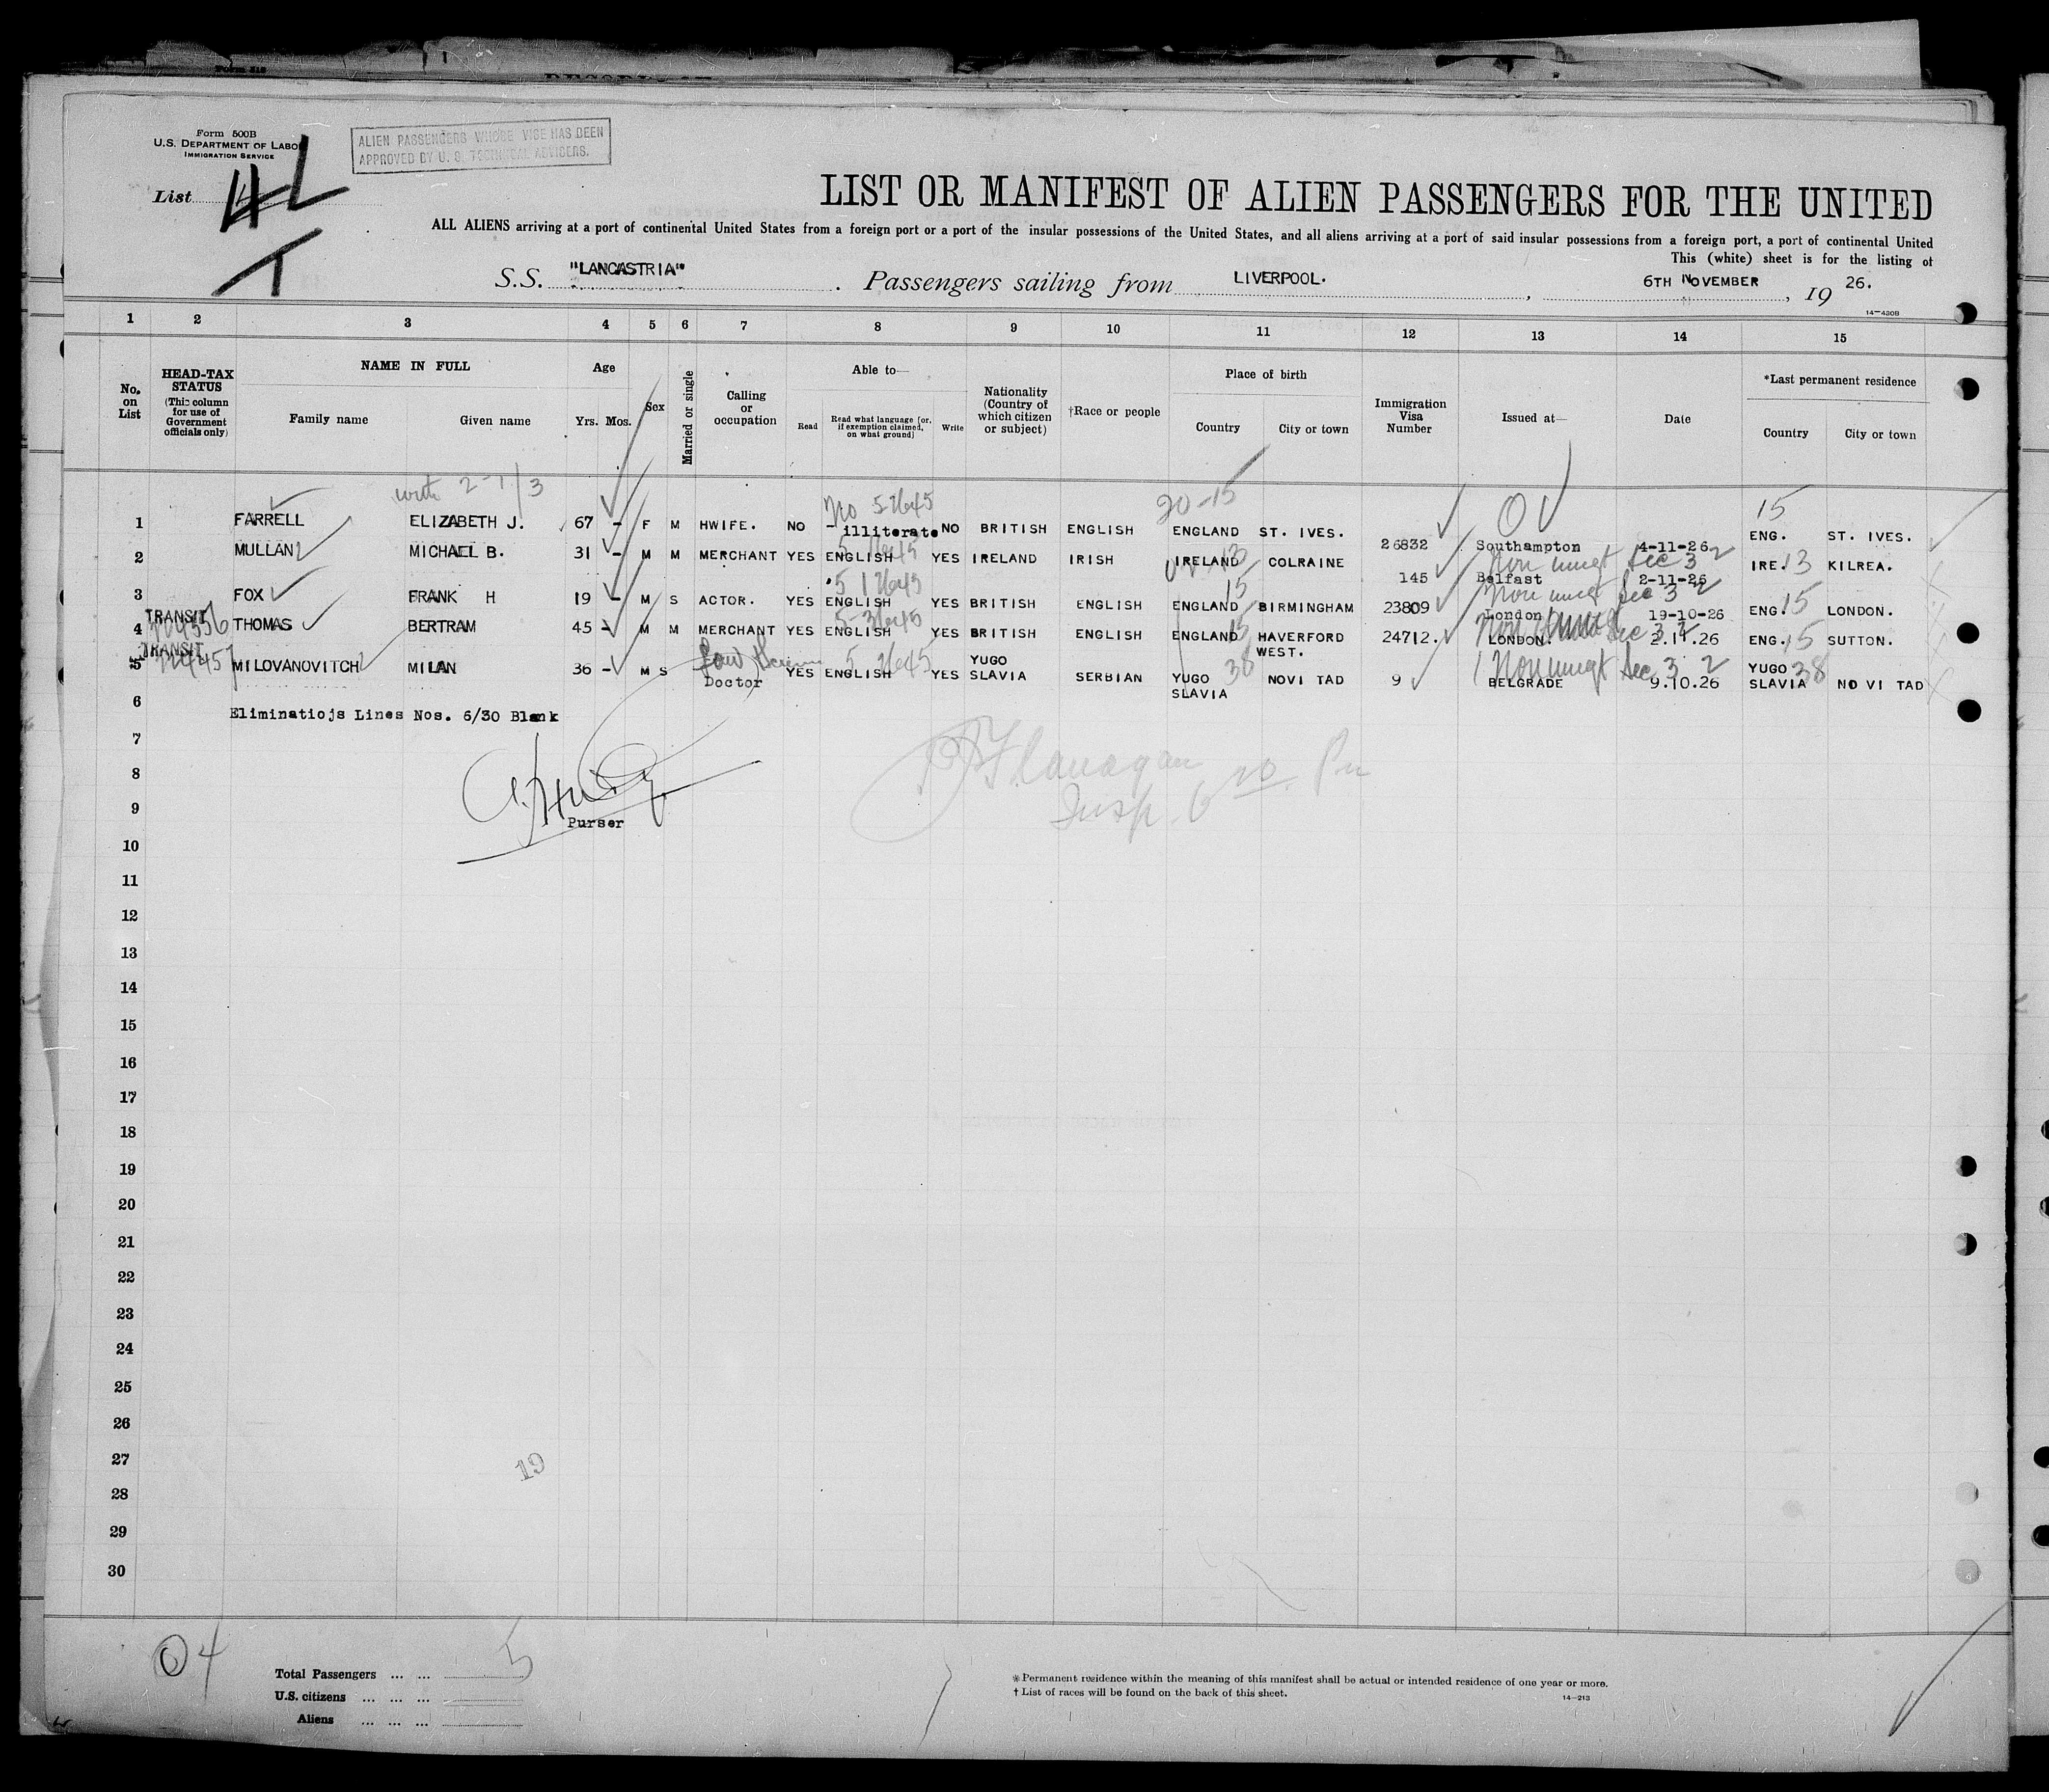 Form 500B
U.S. DEPARTMENT OF LABOR
IMMIGRATION SERVICE
ALIEN PASSENGERS WHOSE VISE HAS BEEN
APPROVED BY U. S. TECHNICAL ADVISERS.
List
LIST OR MANIFEST OF ALIEN PASSENGERS FOR THE UNITED
ALL ALIENS arriving at a port of continental United States from a foreign port or a port of the insular possessions of the United States, and all aliens arriving at a port of said insular possessions from a foreign port, a port of continental United
This (white) sheet is for the listing of
S.S. "LANCASTRIA" . Passengers sailing from LIVERPOOL. , 6TH NOVEMBER , 19 26.
14—430B
1 2 3 4 5 6 7 8 9 10 11 12 13 14 15
No. on List
HEAD-TAX STATUS (This column for use of Government officials only)
NAME IN FULL
Family name Given name
Age
Yrs. Mos.
Sex
Married or single
Calling or occupation
Able to—
Read
Read what language [or, if exemption claimed, on what ground]
Write
Nationality (Country of which citizen or subject)
†Race or people
Place of birth
Country City or town
Immigration Visa Number
Issued at—
Date
*Last permanent residence
Country City or town
with 2-1/3
No 5 20-15 15
1 FARRELL ELIZABETH J. 67 - F M HWIFE. NO - illiterate NO BRITISH ENGLISH ENGLAND ST. IVES. 26832 Southampton 4-11-26 ENG. ST. IVES.
Non immgt Sec 3 2
2 MULLAN MICHAEL B. 31 - M M MERCHANT YES ENGLISH YES IRELAND IRISH IRELAND COLRAINE 145 Belfast 2-11-26 IRE. 13 KILREA.
Non immgt Sec 3 2
3 FOX FRANK H 19 - M S ACTOR. YES ENGLISH YES BRITISH ENGLISH ENGLAND 15 BIRMINGHAM 23809 London 19-10-26 ENG. 15 LONDON.
TRANSIT
4 THOMAS BERTRAM 45 - M M MERCHANT YES ENGLISH YES BRITISH ENGLISH ENGLAND 15 HAVERFORD WEST. 24712. LONDON. 2.11.26 ENG. 15 SUTTON.
TRANSIT
Non immgt Sec. 3 2
5 MILOVANOVITCH MILAN 36 - M S Doctor YES ENGLISH YES YUGO SLAVIA SERBIAN YUGO SLAVIA 38 NOVI TAD 9 BELGRADE 9.10.26 YUGO SLAVIA 38 NOVI TAD
6 Eliminatiojs Lines Nos. 6/30 Blank
7
8
9
Purser
Flanagan
Insp.
10
11
12
13
14
15
16
17
18
19
20
21
22
23
24
25
26
27
19
28
29
30
04
Total Passengers ... ... 5
U.S. citizens ... ... ...
Aliens ... ... ...
* Permanent residence within the meaning of this manifest shall be actual or intended residence of one year or more.
† List of races will be found on the back of this sheet.
14—213